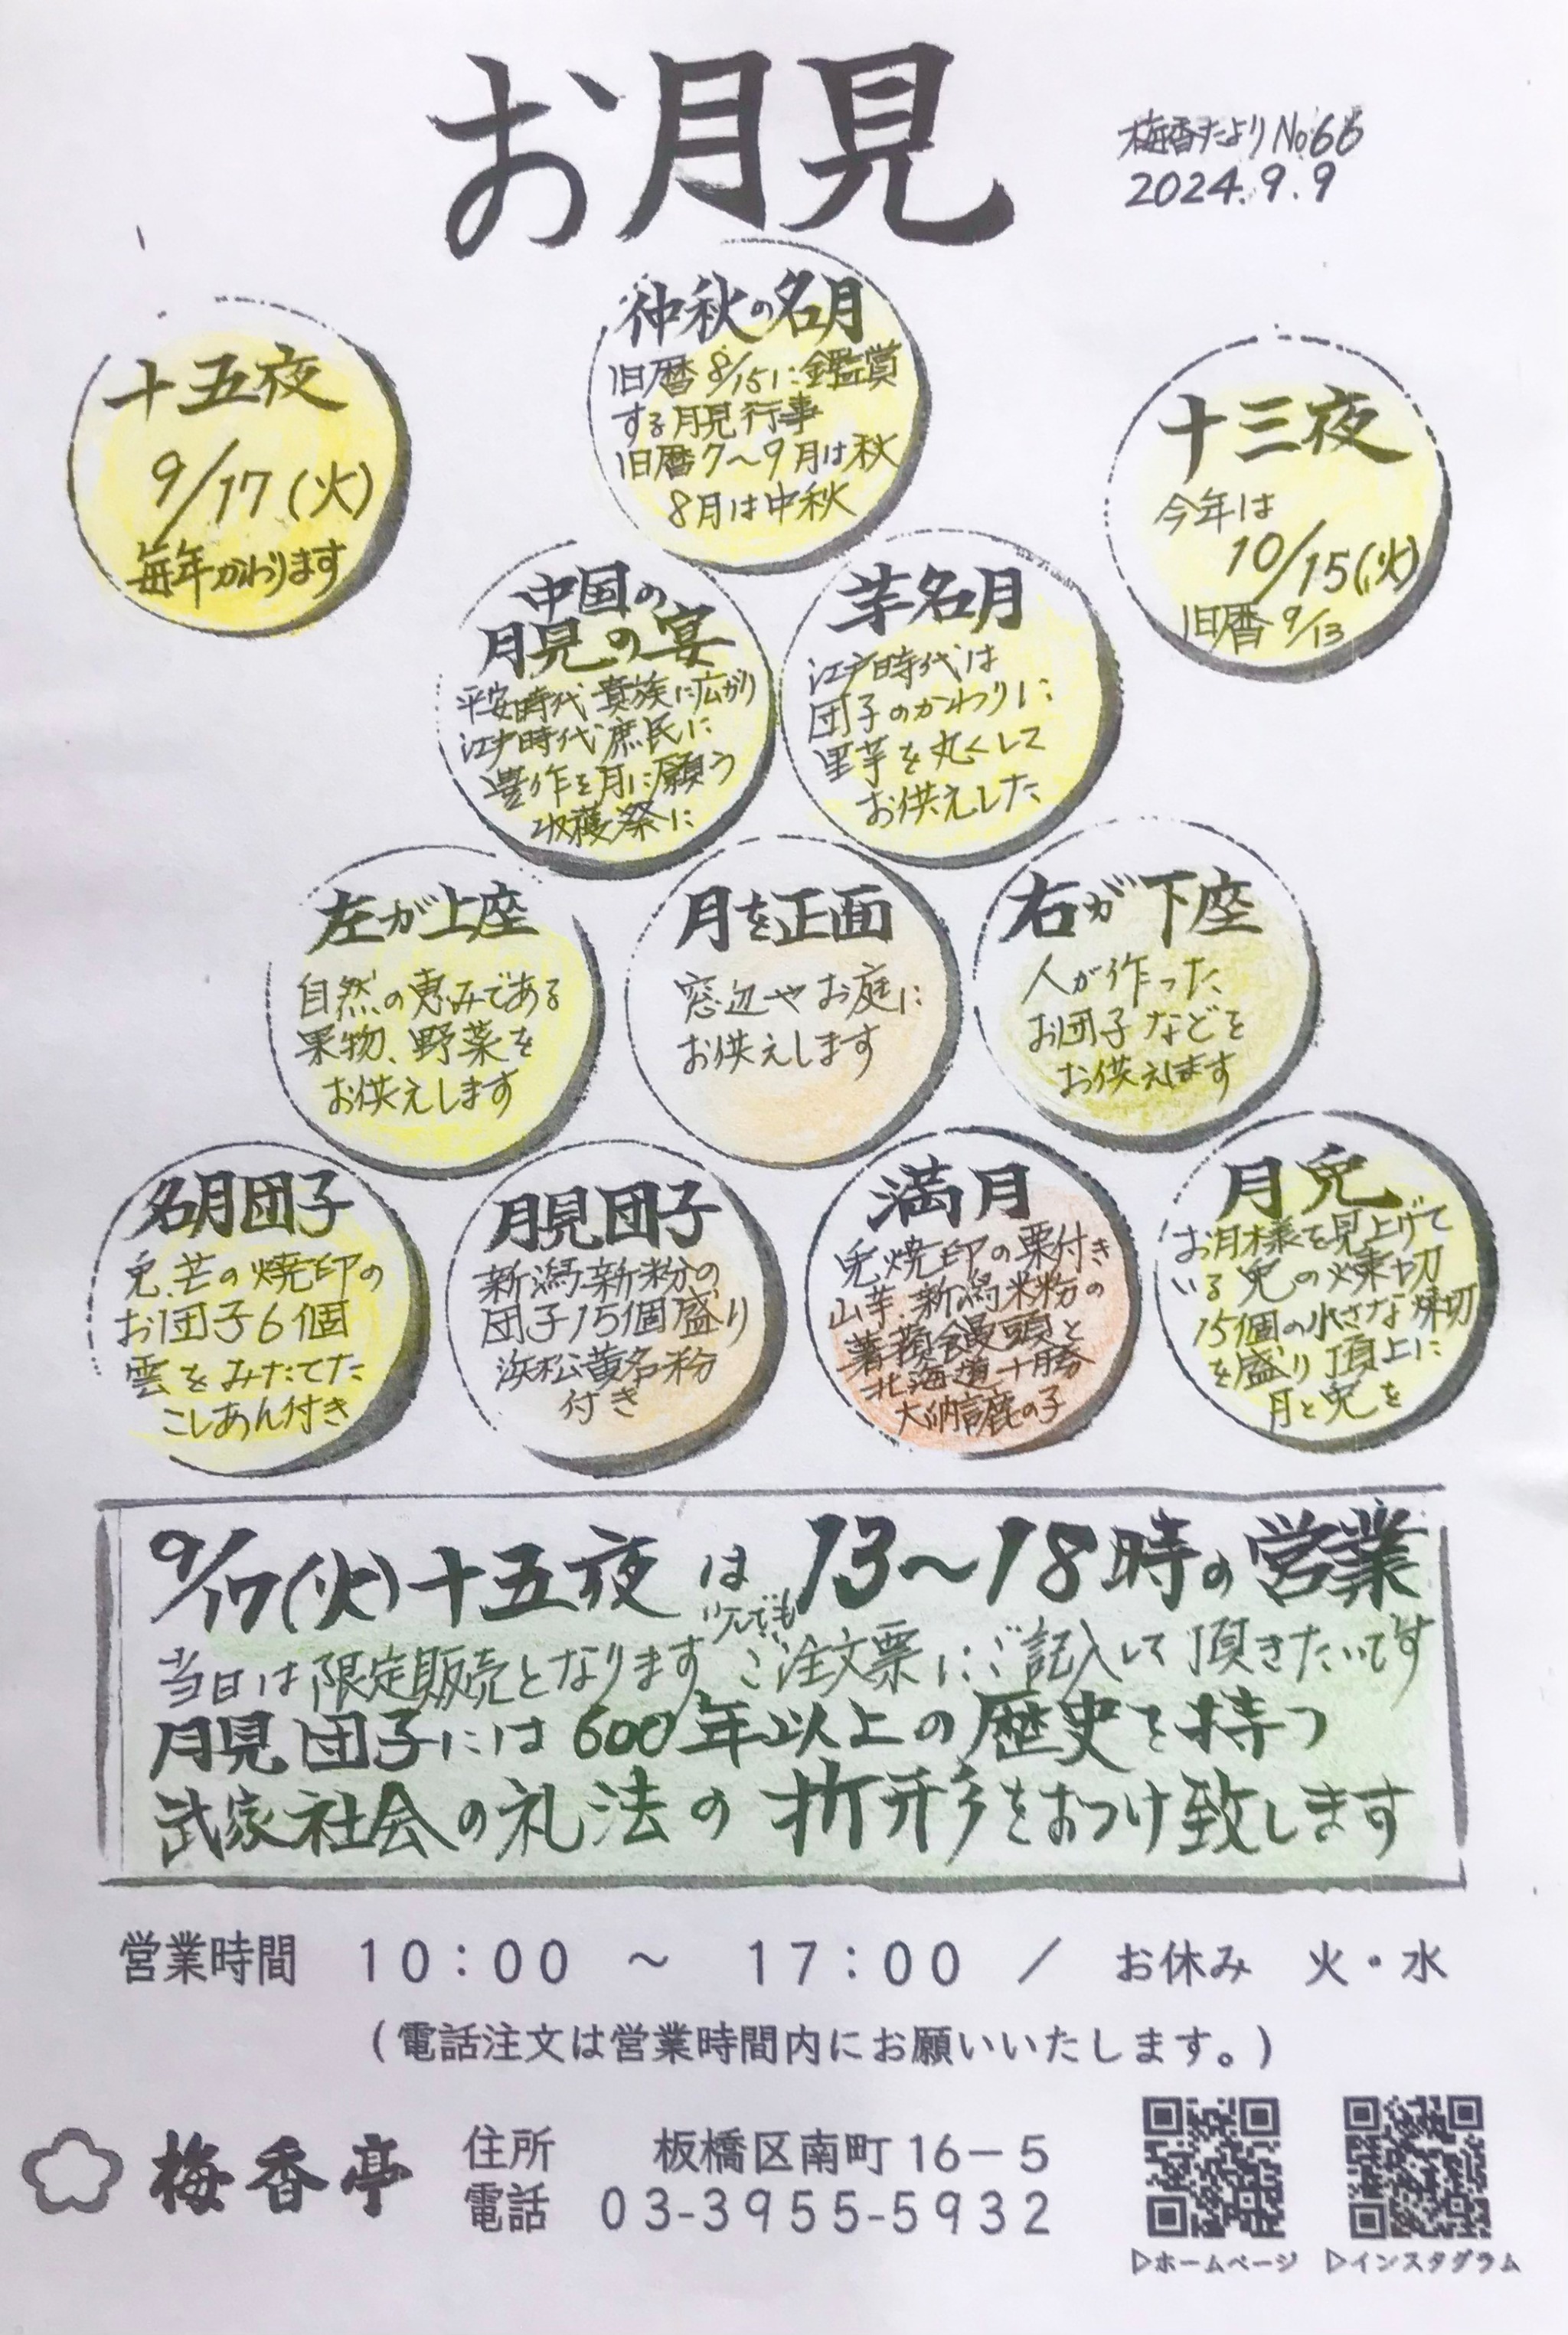 お月見
梅香だより No66
2024.9.9
十五夜
9/17(火)
毎年かわります
仲秋の名月
旧暦8/15に鑑賞
する月見行事
旧暦7〜9月は秋
8月は中秋
十三夜
今年は
10/15(火)
旧暦9/13
中国の
月見の宴
平安時代貴族に広がり
江戸時代庶民に
豊作を月に願う
収穫祭に
芋名月
江戸時代は
団子のかわりに
里芋を丸くして
お供えした
左が上座
自然の恵みである
果物、野菜を
お供えします
月を正面
窓辺やお庭に
お供えします
右が下座
人が作った
お団子などを
お供えします
名月団子
兎、芒の焼印の
お団子6個
雲をみたてた
こしあん付き
月見団子
新潟新粉の
団子15個盛り
浜松黄名粉
付き
満月
兎焼印の栗付き
山芋、新潟米粉の
薯蕷饅頭と
北海道十勝
大納言鹿の子
月兎
お月様を見上げて
いる兎の煉切
15個の小さな煉切
を盛り頂上に
月と兎を
9/17(火)十五夜は13〜18時の営業
当日は限定販売となります いつでもご注文票にご記入して頂きたいです
月見団子には600年以上の歴史を持つ
武家社会の礼法の折形をおつけ致します
営業時間 10:00 ～ 17:00 / お休み 火・水
(電話注文は営業時間内にお願いいたします。)
梅香亭
住所 板橋区南町16－5
電話 03-3955-5932
▷ホームページ
▷インスタグラム